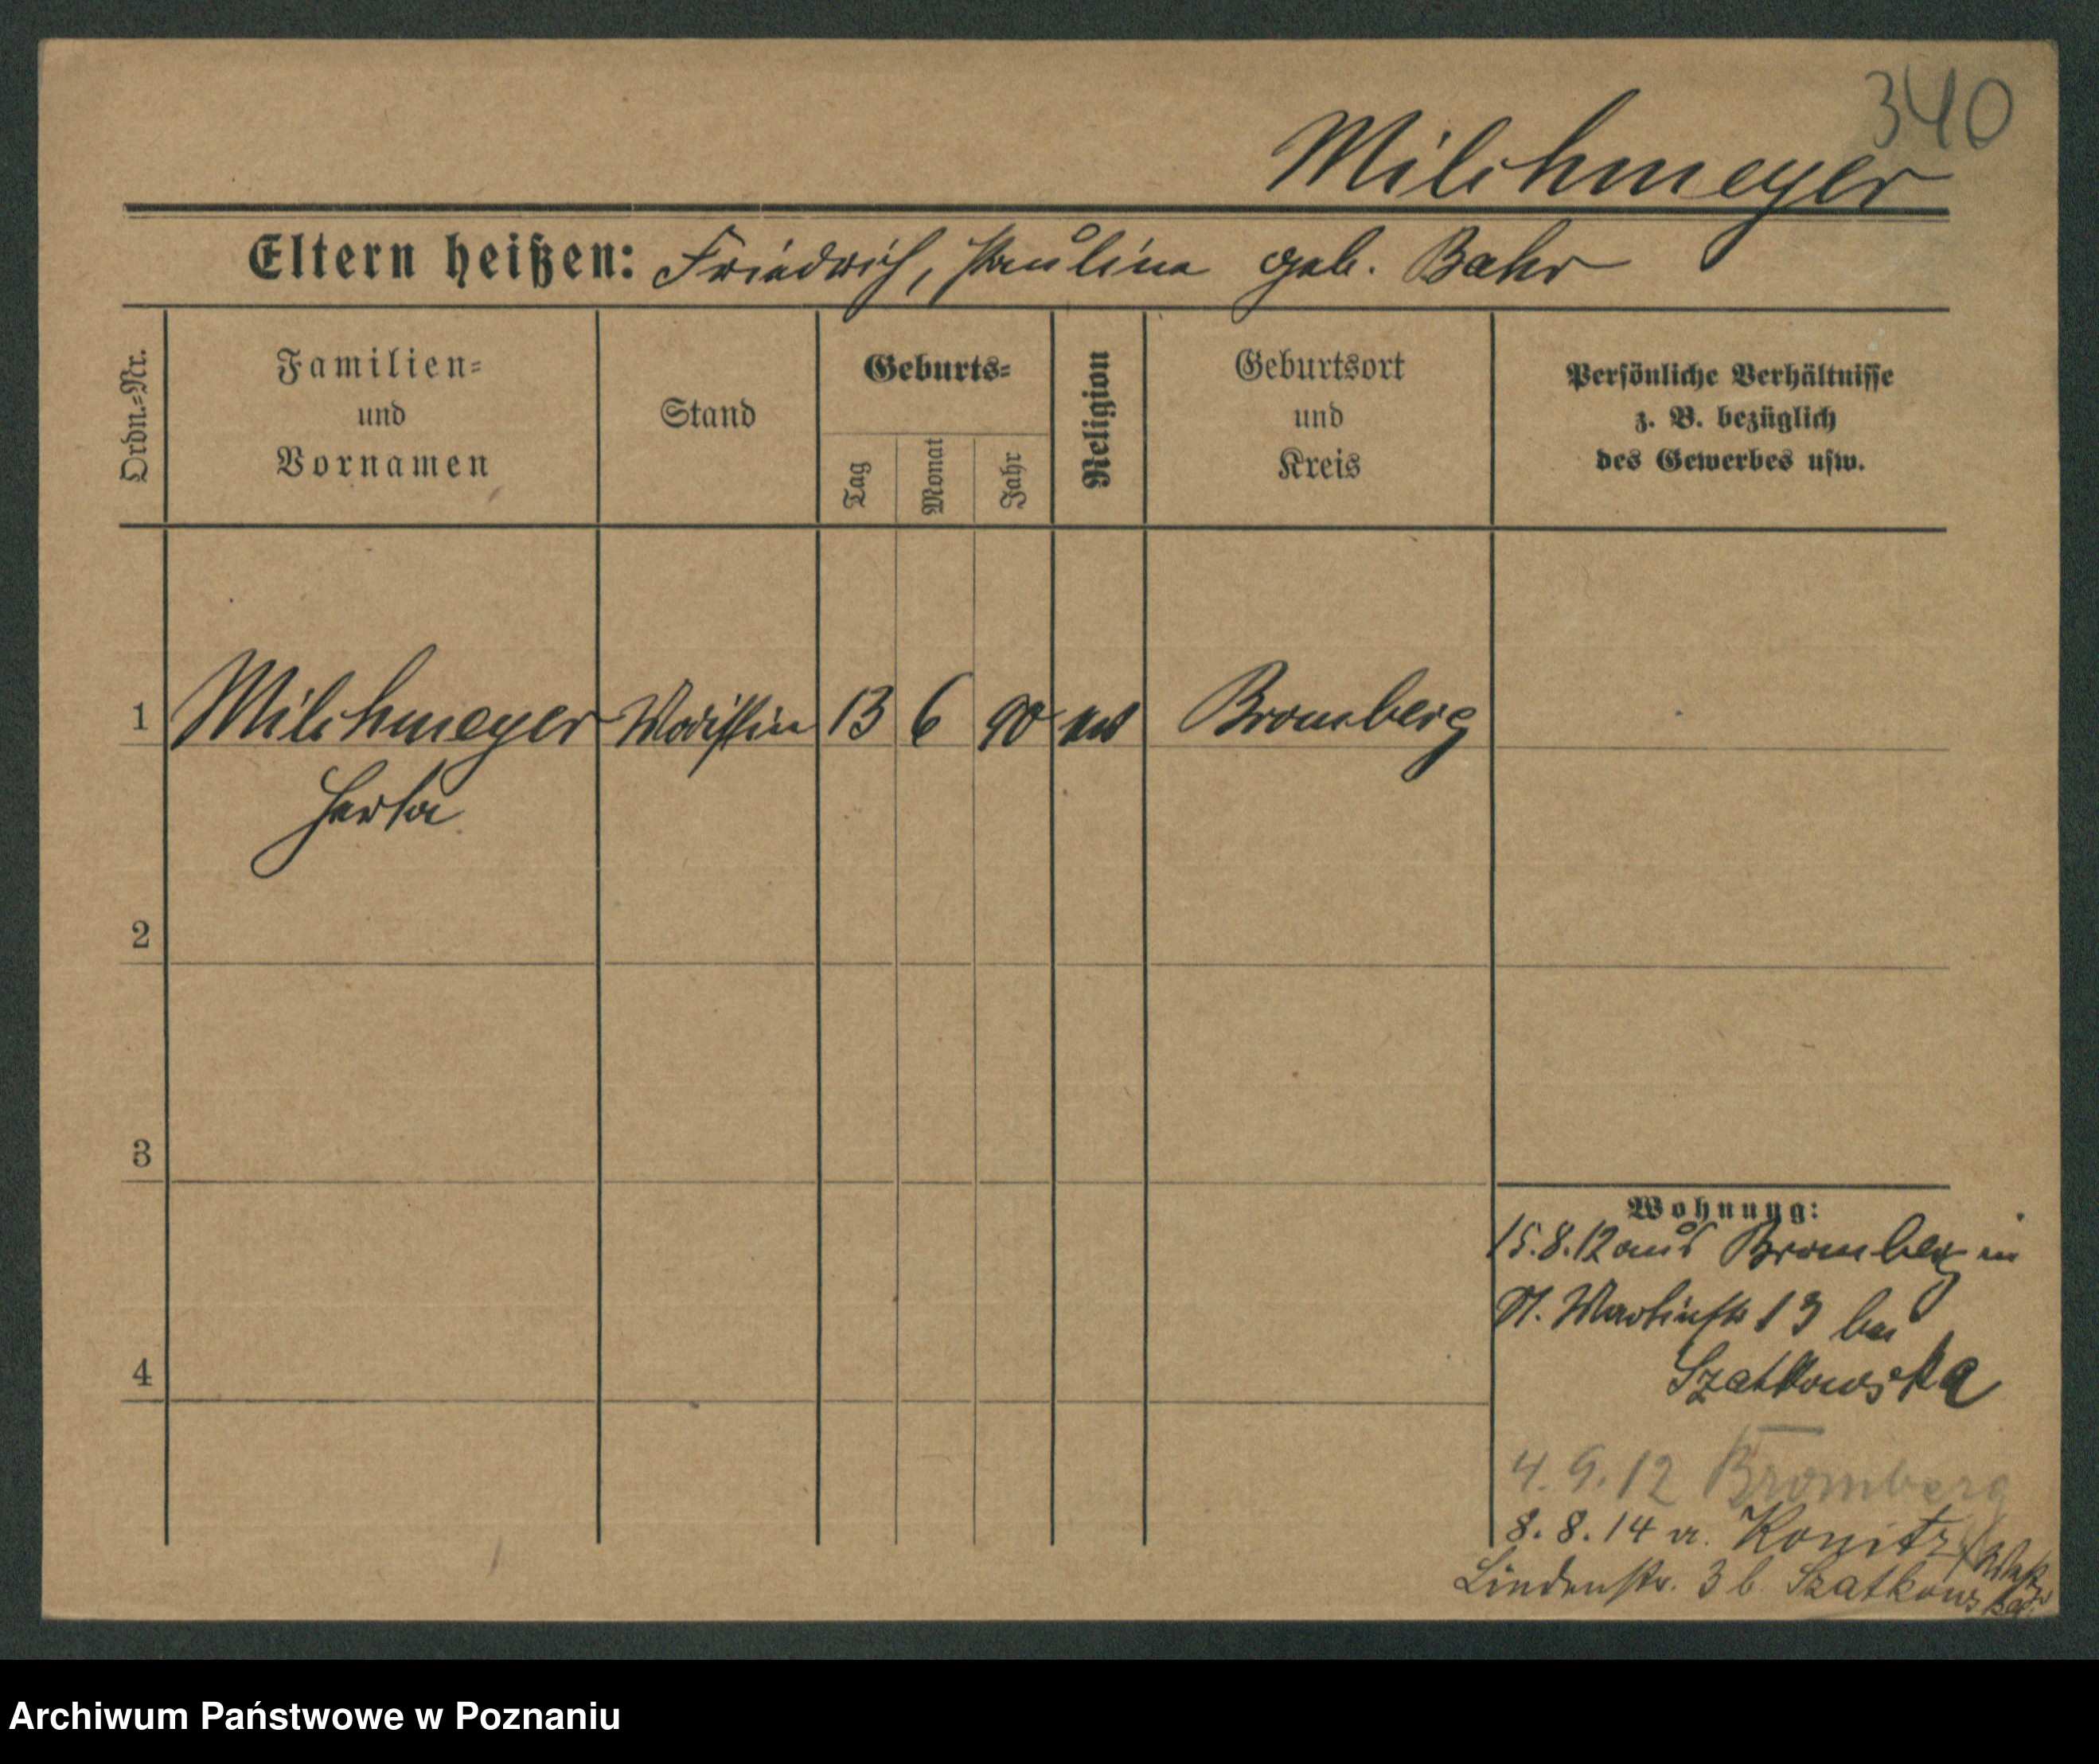 340
Milchmeyer
Eltern heißen: Friedrich, Pauline geb. Bahr
Ordn.-Nr.
Familien-
und
Vornamen
Stand
Geburts-
Tag
Monat
Jahr
Religion
Geburtsort
und
Kreis
Persönliche Verhältnisse
z. B. bezüglich
des Gewerbes usw.
1 Milchmeyer Modistin 13 6 90 Bromberg
Herta
2
3
4
Wohnung:
15.8.12 aus Bromberg in
St. Martinstr 13 bei
Szatkowska
4.9.12 Bromberg
8.8.14 a. Konitz
Lindenstr. 3 b. Szatkowska
Archiwum Państwowe w Poznaniu